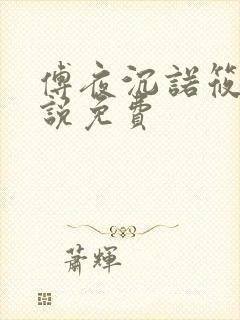 傅夜沉諾筱
說免費
蕭輝